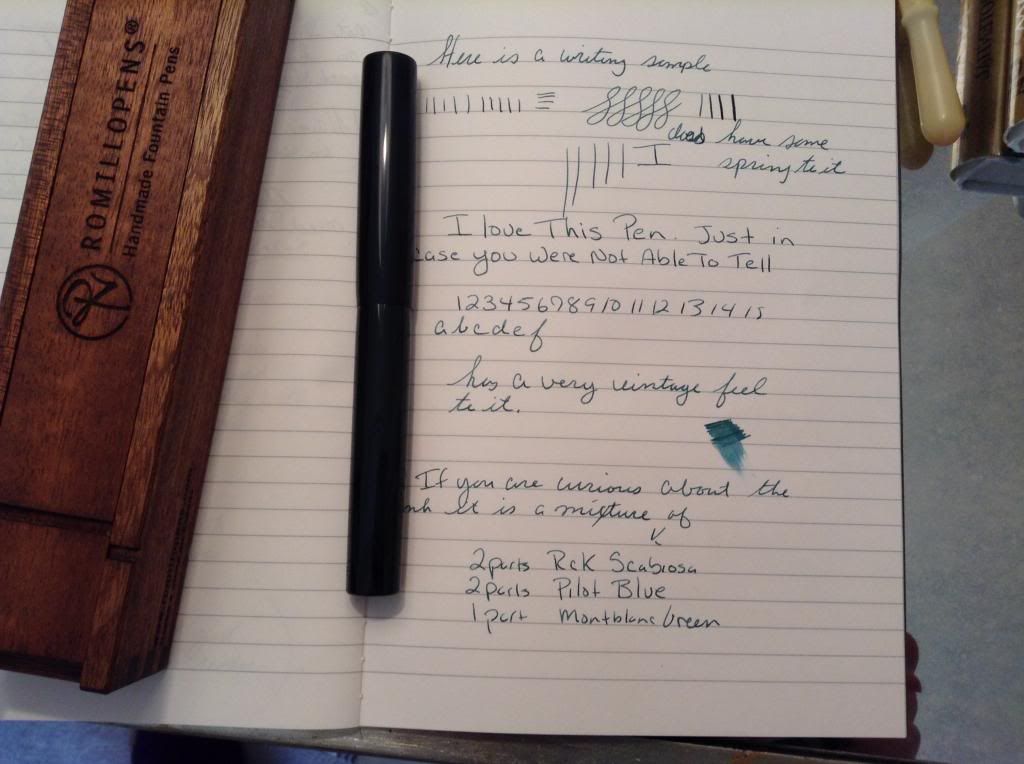 ROMILLOPENS®
Handmade Fountain Pens
Here is a writing sample
does have some
I spring to it
I love This Pen. Just in
case you Were Not Able To Tell
1 2 3 4 5 6 7 8 9 10 11 12 13 14 15
a b c d e f
has a very vintage feel
to it.
If you are curious about the
ink It is a mixture of
2 parts R&K Scabiosa
2 parts Pilot Blue
1 part Montblanc Green